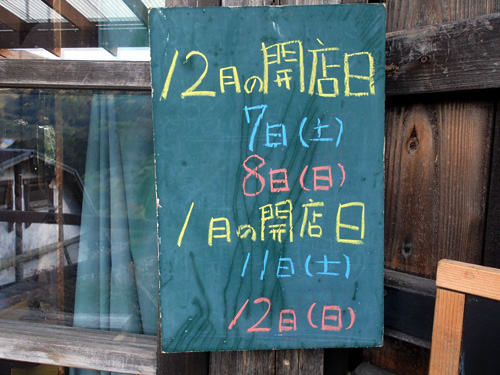 12月の開店日
7日(土)
8日(日)
1月の開店日
11日(土)
12日(日)